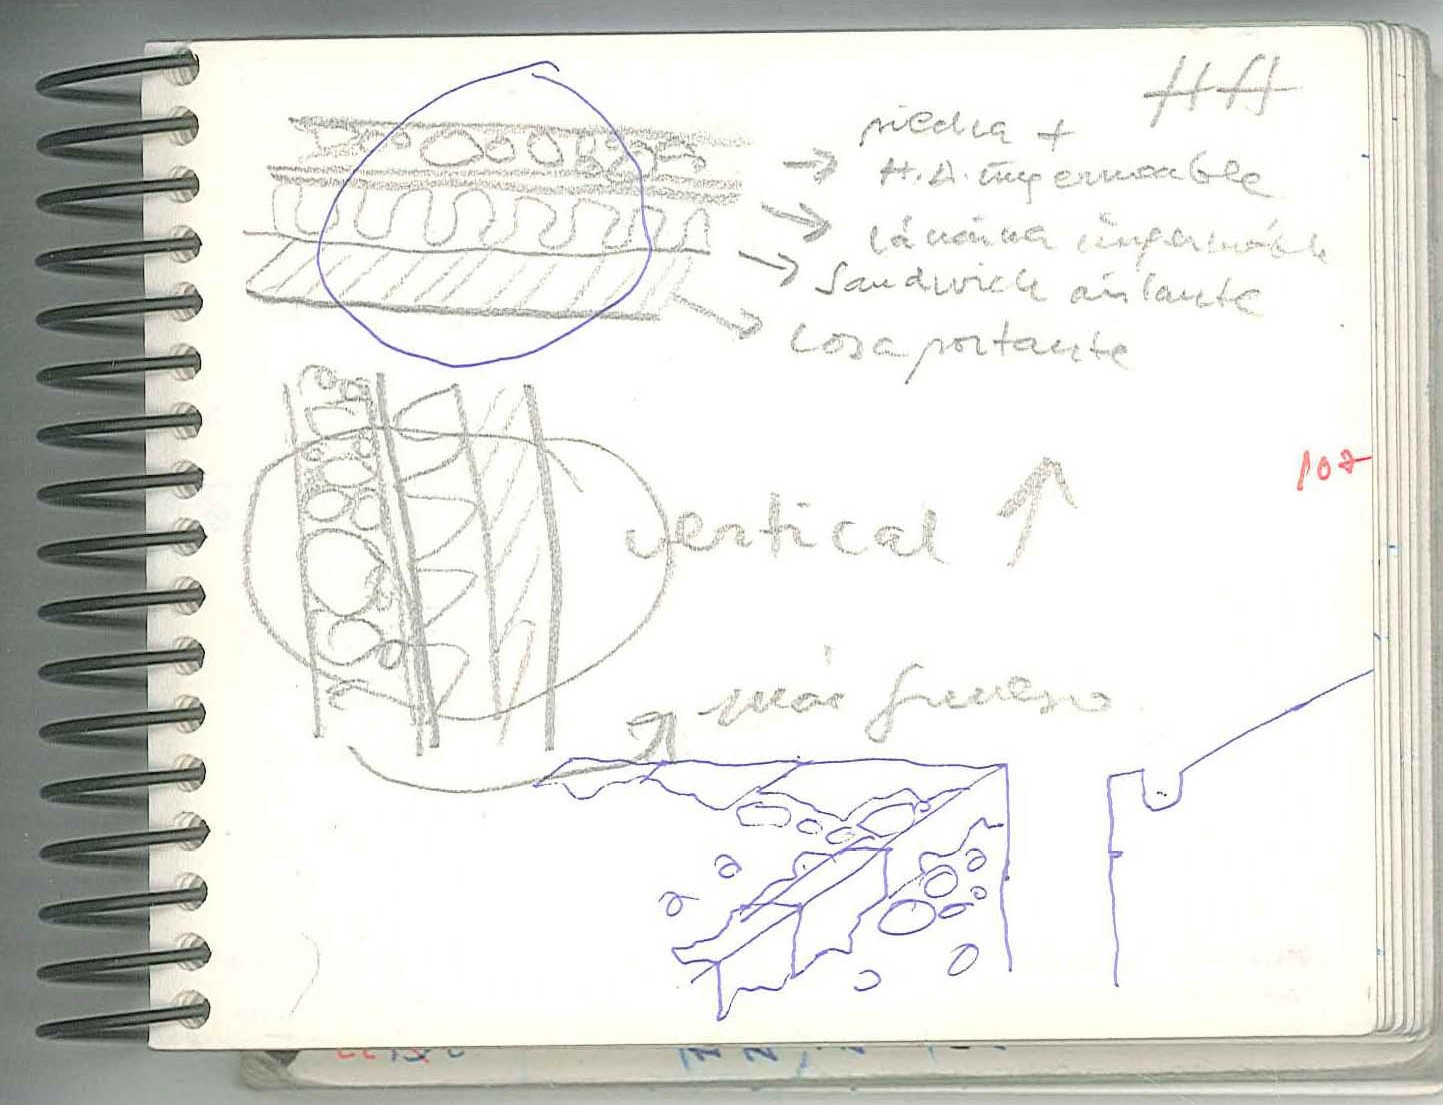 HA
piedra +
H.A. impermeable
lámina impermeable
Sandwich aislante
losa portante
107
vertical
más grueso